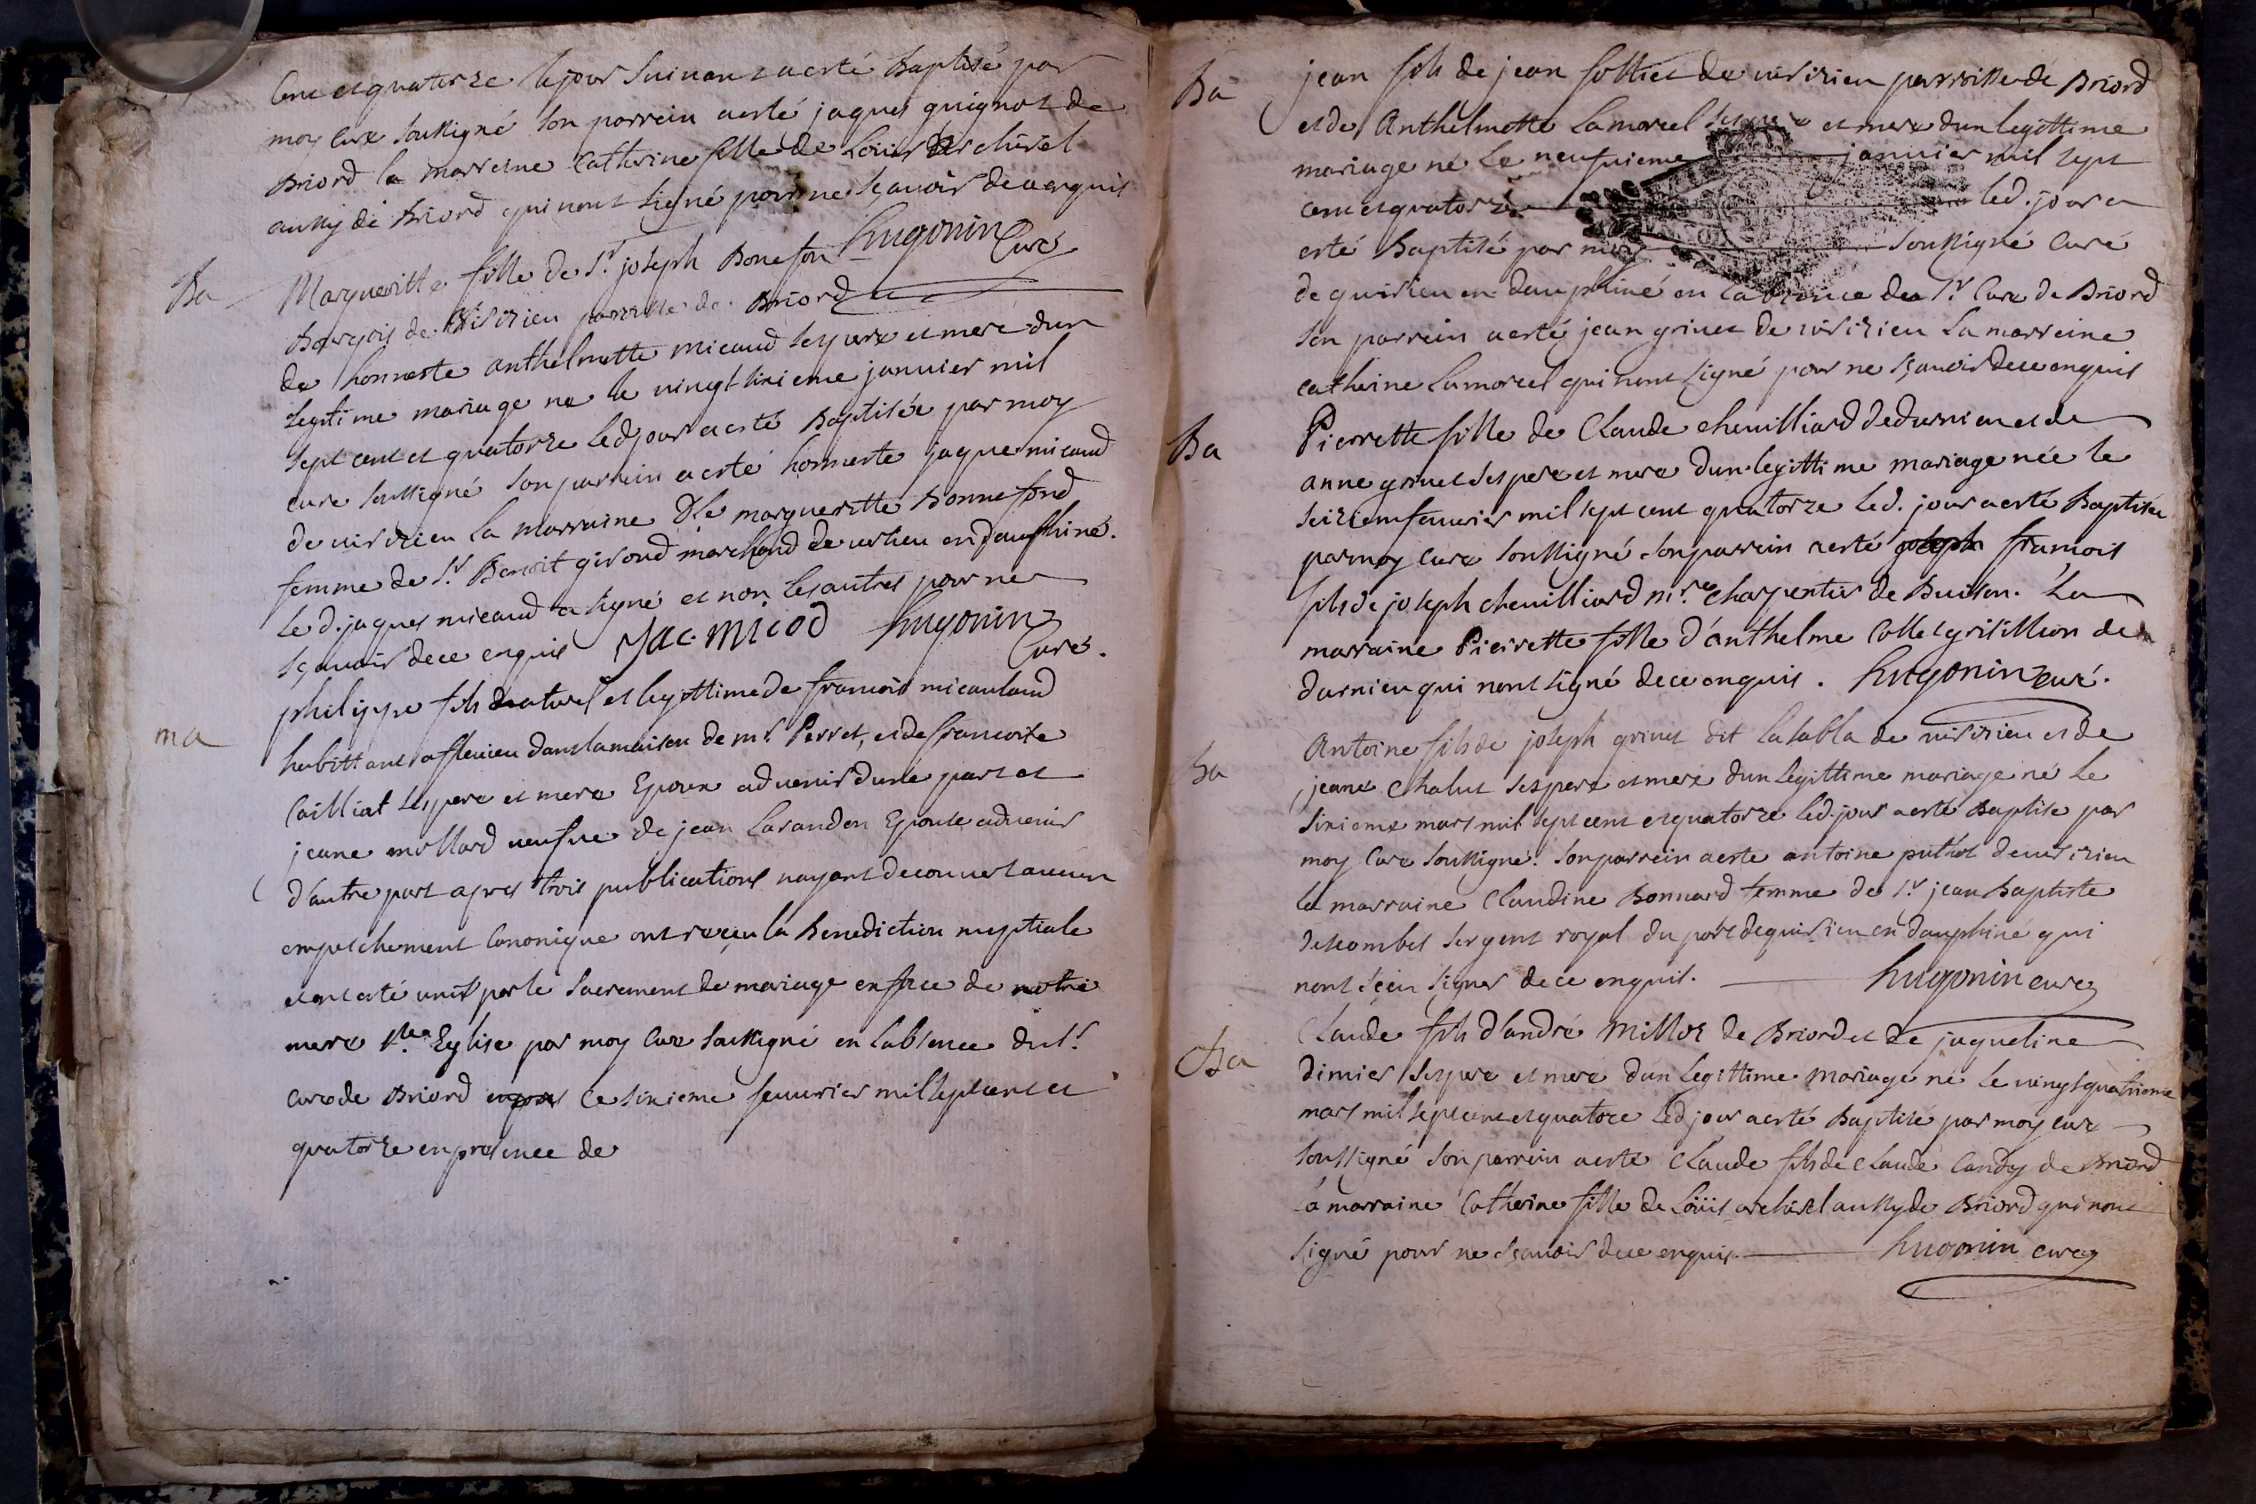 cent et quatorze le jour suivant a esté Baptisé par
moy curé soussigné son parrein a esté jaques guignot de
Briord la marreine Catherine fille de Louis archirel
aussy de Briord qui nont signé pour ne sçavoir de ce enquis
hugonin Curé
Ba Margueritte fille de Sr. joseph Bonefon
Bourgois de visirieu parroisse de Briord
de honneste anthelmette micaud ses pere et mere dun
legitime mariage ne le vingt sixieme janvier mil
sept cent et quatorze led jour a esté Baptisée par moy
curé soussigné son parrein a esté honneste jaque micaud
de visirieu la marraine Dle margueritte Bonnefond
femme de Sr. Benoit giroud marchand de verlieu en dauphiné.
Le d. jaques micaud a signé et non les autres pour ne
sçavoir de ce enquis Jac. micod hugonin
Curé.
ma philippe fils naturel et legittime de francois micauland
habittant a flevieu dans la maison de mr. Perret, et de francoise
Cailliat ses pere et mere Epoux advenir dune part et
jeane mollard veufve de jean Larandon Epouse advenir
d'autre part apres trois publications nayant decouvert aucun
empeschement Canonique ont receu la Benediction nuptiale
et ont esté unis par le sacrement de mariage en face de notre
mere Ste Eglise par moy Curé soussigné en Labsence du Sr.
curé de Briord ce sixieme fevvrier mil sept cent et
quatorze en presence de
Ba jean fils de jean sottiet de visirieu parroisse de Briord
et de Anthelmette Lamorcel ses pere et mere dun legittime
mariage né Le neufvieme janvier mil sept
cent et quatorze led. jour a
esté Baptisé par moy soussigné Curé
de quirieu en dauphiné en Labsence du Sr. Curé de Briord
son parrein a esté jean grinet de visirieu La marreine
catherine Lamorcel qui nont signé pour ne sçavoir de ce enquis
Ba Pierrette fille de Claude chevilliard de durnieu et de
anne grinet ses pere et mere dun legittime mariage née le
seiziem fevvrier mil sept cent quatorze led. jour a esté Baptisée
par moy Curé soussigné son parrein a esté joseph francois
fils de joseph chevilliard mre charpentier de Buisson. La
marraine Pierrette fille d'anthelme Collet grisillion de
durnieu qui nont signé de ce enquis. hugonin curé.
Ba Antoine fils de joseph grinet dit la sabla de visirieu et de
jeane Chalut ses pere et mere dun legittime mariage né le
sixieme mars mil sept cent et quatorze led. jour a esté Baptise par
moy Curé soussigné. son parrein a esté antoine puthot de visirieu
la marraine Claudine Bonnard femme de Sr jean Baptiste
descombes sergent royal du port de quirieu en dauphiné qui
nont sceu signer de ce enquis. hugonin curé
Ba Claude fils d'andré Millot de Briord et de jaqueline
dimier ses pere et mere dun legittime mariage né le vingt quatrieme
mars mil sept cent et quatorce led jour a esté Baptisé par moy curé
soussigné son parrein a esté Claude fils de Claude Candy de Briord
a marraine Catherine fille de Loüis archirel aussy de Briord qui nont
signé pour ne sçavoir de ce enquis hugonin curé